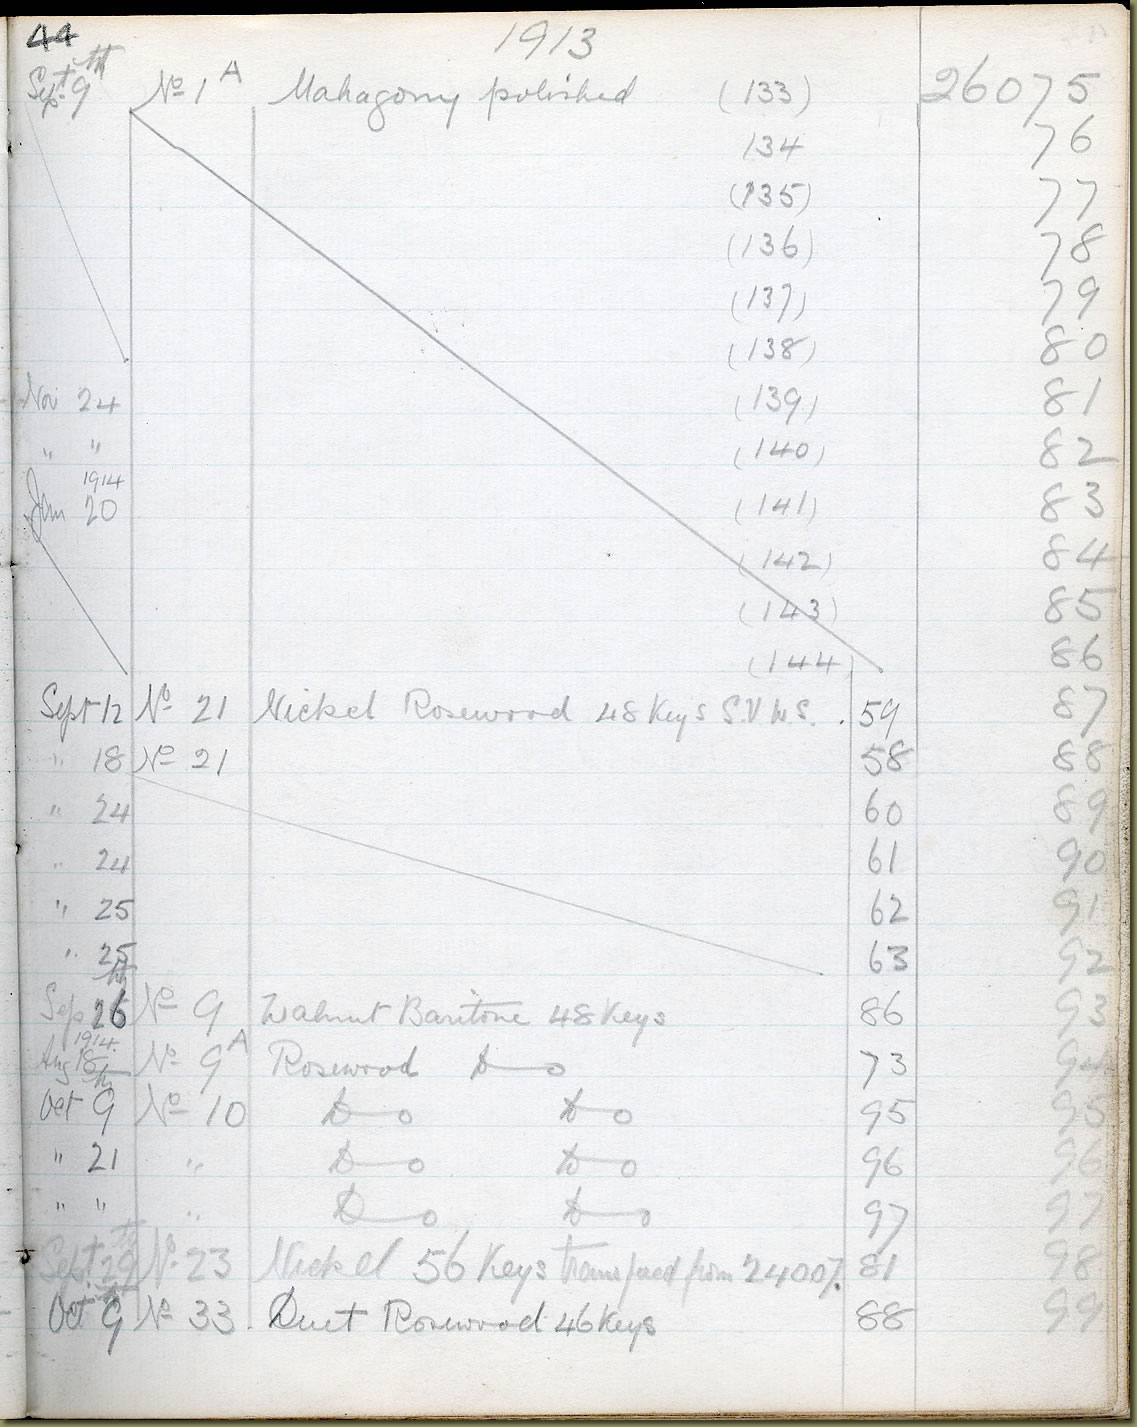 44 1913
Sept 9th No 1A Mahagony polished (133) 26075
134 76
(135) 77
(136) 78
(137) 79
(138) 80
Nov 24 (139) 81
" " (140) 82
1914
Jan 20 (141) 83
(142) 84
(143) 85
(144) 86
Sept 12 No 21 Nickel Rosewood 48 Keys S.V W.S. . 59 87
" 18 No 21 58 88
" 24 60 89
" 24 61 90
" 25 62 91
" 25 63 92
Sep 26th No 9 Walnut Baritone 48 Keys 86 93
1914.
Aug 18 No 9A Rosewood Do 73 94
Oct 9th No 10 Do Do 95 95
" 21 " Do Do 96 96
" " " Do Do 97 97
Sept. 29th No 23 Nickel 56 Keys from 24007. 81 98
Oct 9th No 33. Duet Rosewood 46 Keys 88 99